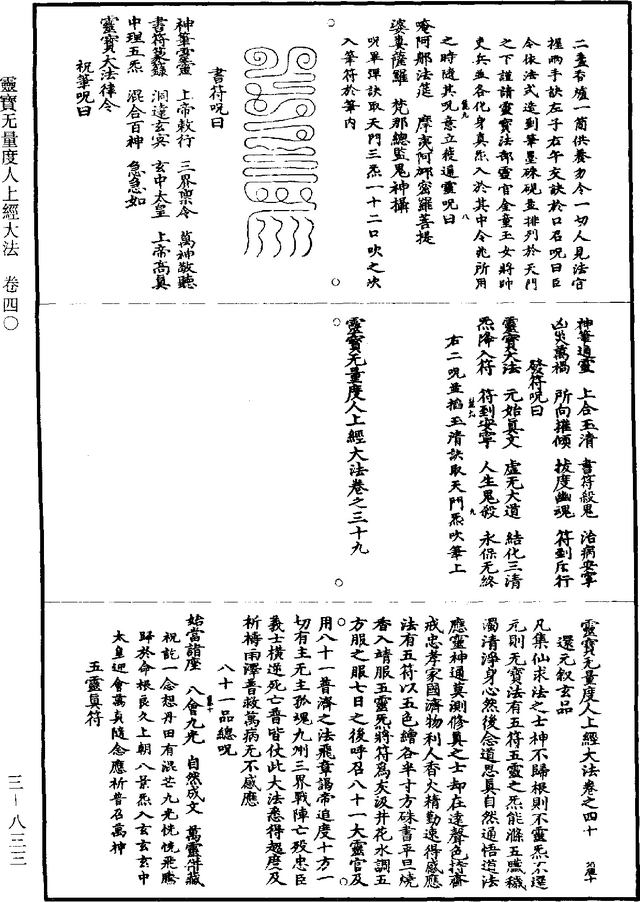 二盞香爐一箇供養勿令一切人見法官
握兩手訣左子右午交訣於口召呪曰臣
今依法式造到筆墨硃硯並排列於天門
之下謹請靈寶法部靈官金童玉女將帥
吏兵並各化身真炁入於其中令兆所用
之時隨其呪意立獲通靈呪曰
唵阿那法莚 摩戛阿那密羅菩提
婆婁薩羅 梵那總監鬼神攝
呪畢彈訣取天門三炁一十二口吹之次
入筆符於筆內
書符呪曰
神筆靈靈 上帝敕行 三界稟令 萬神敬聽
書符篆籙 洞達玄冥 玄中太皇 上帝高真
中理五炁 混合百神 急急如
靈寶大法律令
祝筆呪曰
神筆通靈 上合玉清 書符殺鬼 治病安寧
凶災萬禍 所向摧傾 拔度幽魂 符到奉行
發符呪曰
靈寶大法 元始真文 虛无大道 結化三清
炁降入符 符到安寧 人生鬼殺 永保无終
右二呪並掐玉清訣取天門炁吹筆上
靈寶无量度人上經大法卷之三十九
靈寶无量度人上經大法卷之四十
還元叙玄品
凡集仙求法之士神不歸根則不靈炁不還
元則无寶法有五符五靈之炁能滌五臟穢
濁清淨身心然後念道思真自然通悟道法
應靈神通莫測修真之士却在違聲色持齋
戒忠孝家國濟物利人香火精勤速得感應
法有五符以五色繒各半寸方硃書平旦燒
香入靖服五靈炁將符爲灰汲井花水調五
方服之服七日之後呼召八十一大靈官及
用八十一普濟之法飛章謁帝追度十方一
切有主无主孤魂九州三界戰陣亡歿忠臣
義士橫逆死亡普皆仗此大法悉得超度及
祈禱雨澤普救萬病无不感應
八十一品總呪
始當諸座 八會九光 自然成文 萬靈舜藏
祝訖一念想丹田有混芒九光恍恍飛騰
歸於命根良久上朝八景炁入玄玄玄中
太皇迎會萬真隨念應祈普召萬神
五靈真符
靈寶无量度人上經大法 卷四〇
三-八三三